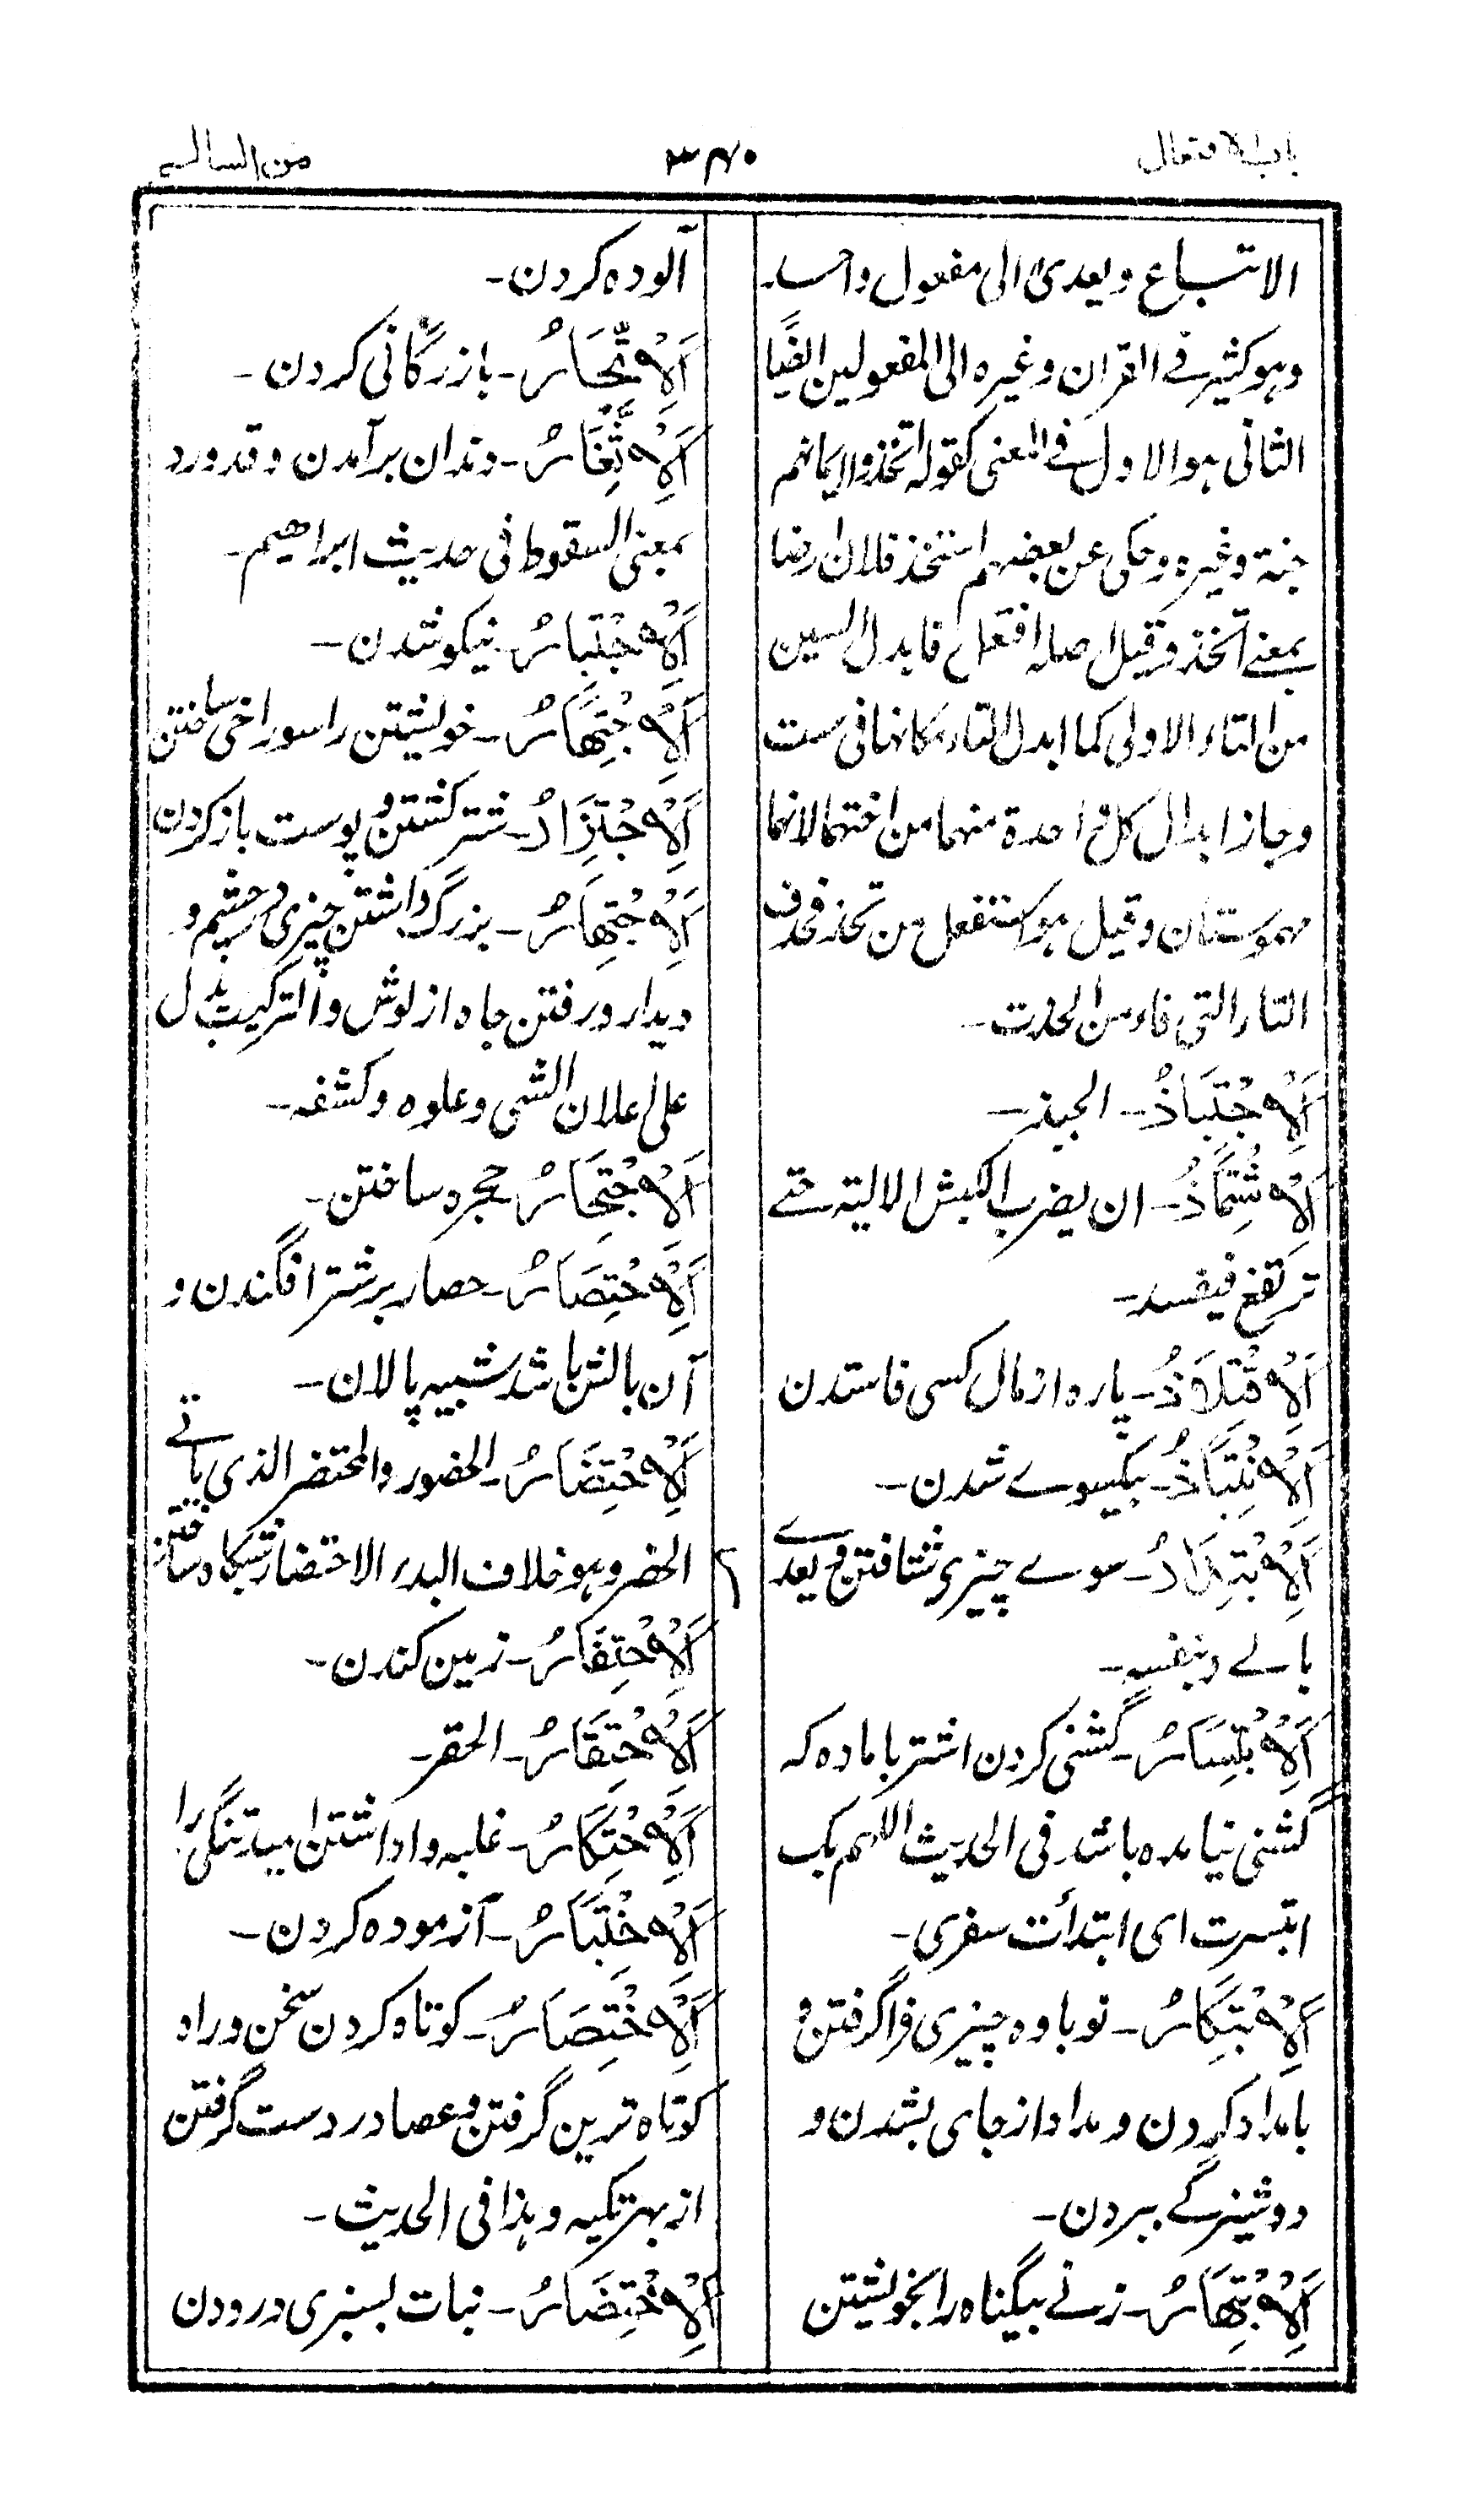 باب الافتعال
۳۴۰
من السالم
الاتباع ویعدی الی مفعول واحد
وہو کثیر فی القران وغیرہ الی المفعولین ایضًا
الثانی ہو الاول فی المعنی کقولہ اتخذوا ایمانہم
جنۃ وغیرہ وحکی عن بعضہم استخذ فلان ارضا
بمعنی اتخذ وقیل اصلہ افتعل فابدل السین
من التاء الاولی کما ابدل التاء مکانہا فی ست
وجاز ابدال کل واحدۃ منہما من اختہا لانہما
مہموستان وقیل ہو استفعل من تخذ فحذف
التاء التی فاء من الحذف۔
اَلْاِجْتِبَاذُ۔ الجبذ۔
اَلْاِشْتِمَاذُ۔ ان یضرب الکبش الالیۃ حتے
ترتفع فیفسد۔
اَلْاِقْتِلَاذُ۔ پارہ از مال کسی فاستدن
اَلْاِنْتِبَاذُ۔ بیکسوے شدن۔
اَلْاِبْتِدَارُ۔ سوے چیزی شتافتن ویعدے
بالے وبنفسہ۔
اَلْاِبْتِسَارُ۔ گشنی کردن اشتر با مادہ کہ
گشنی نیامدہ باشد فی الحدیث اللہم بک
ابتسرت ای ابتدأت سفری۔
اَلْاِبْتِکَارُ۔ نوباوہ چیزی فراگرفتن و
بامداد کردن و بامداد از جای بشدن و
دوشیزگے ببردن۔
اَلْاِبْتِهَارُ۔ زنے بیگناہ را بخویشتن
آلودہ کردن۔
اَلْاِتِّجَارُ۔ بازرگانی کردن۔
اَلْاِثِّغَارُ۔ دندان برآمدن و قد ورد
بمعنی السقوط فی حدیث ابراھیم۔
اَلْاِجْتِبَارُ۔ نیکو شدن۔
اَلْاِجْتِحَارُ۔ خویشتن را سوراخی ساختن
اَلْاِجْتِزَارُ۔ شتر کشتن و پوست باز کردن
اَلْاِجْتِهَارُ۔ بزرگ داشتن چیزی در چشم و
دیدار و رفتن چاہ از لوش والترکیب یدل
علی اعلان الشی وعلوہ وکشفہ۔
اَلْاِحْتِجَارُ۔ حجرہ ساختن۔
اَلْاِحْتِصَارُ۔ حصار بر شتر افگندن و
آن بالش باشد شبیہ پالان۔
اَلْاِحْتِضَارُ۔ الحضور والمحتضر الذی یاتے
الحضر وہو خلاف البدء الاحتضار شبگاہ ساختن
اَلْاِحْتِفَارُ۔ زمین کندن۔
اَلْاِحْتِقَارُ۔ الحقر۔
اَلْاِحْتِکَارُ۔ غلبہ واداشتن امید تنگی را
اَلْاِخْتِبَارُ۔ آزمودہ کردن۔
اَلْاِخْتِصَارُ۔ کوتاہ کردن سخن و راہ
کوتاہ ترین گرفتن و عصا در دست گرفتن
از بہر تکیہ وہذا فی الحدیث۔
اَلْاِخْتِضَارُ۔ نبات بسبزی درودن